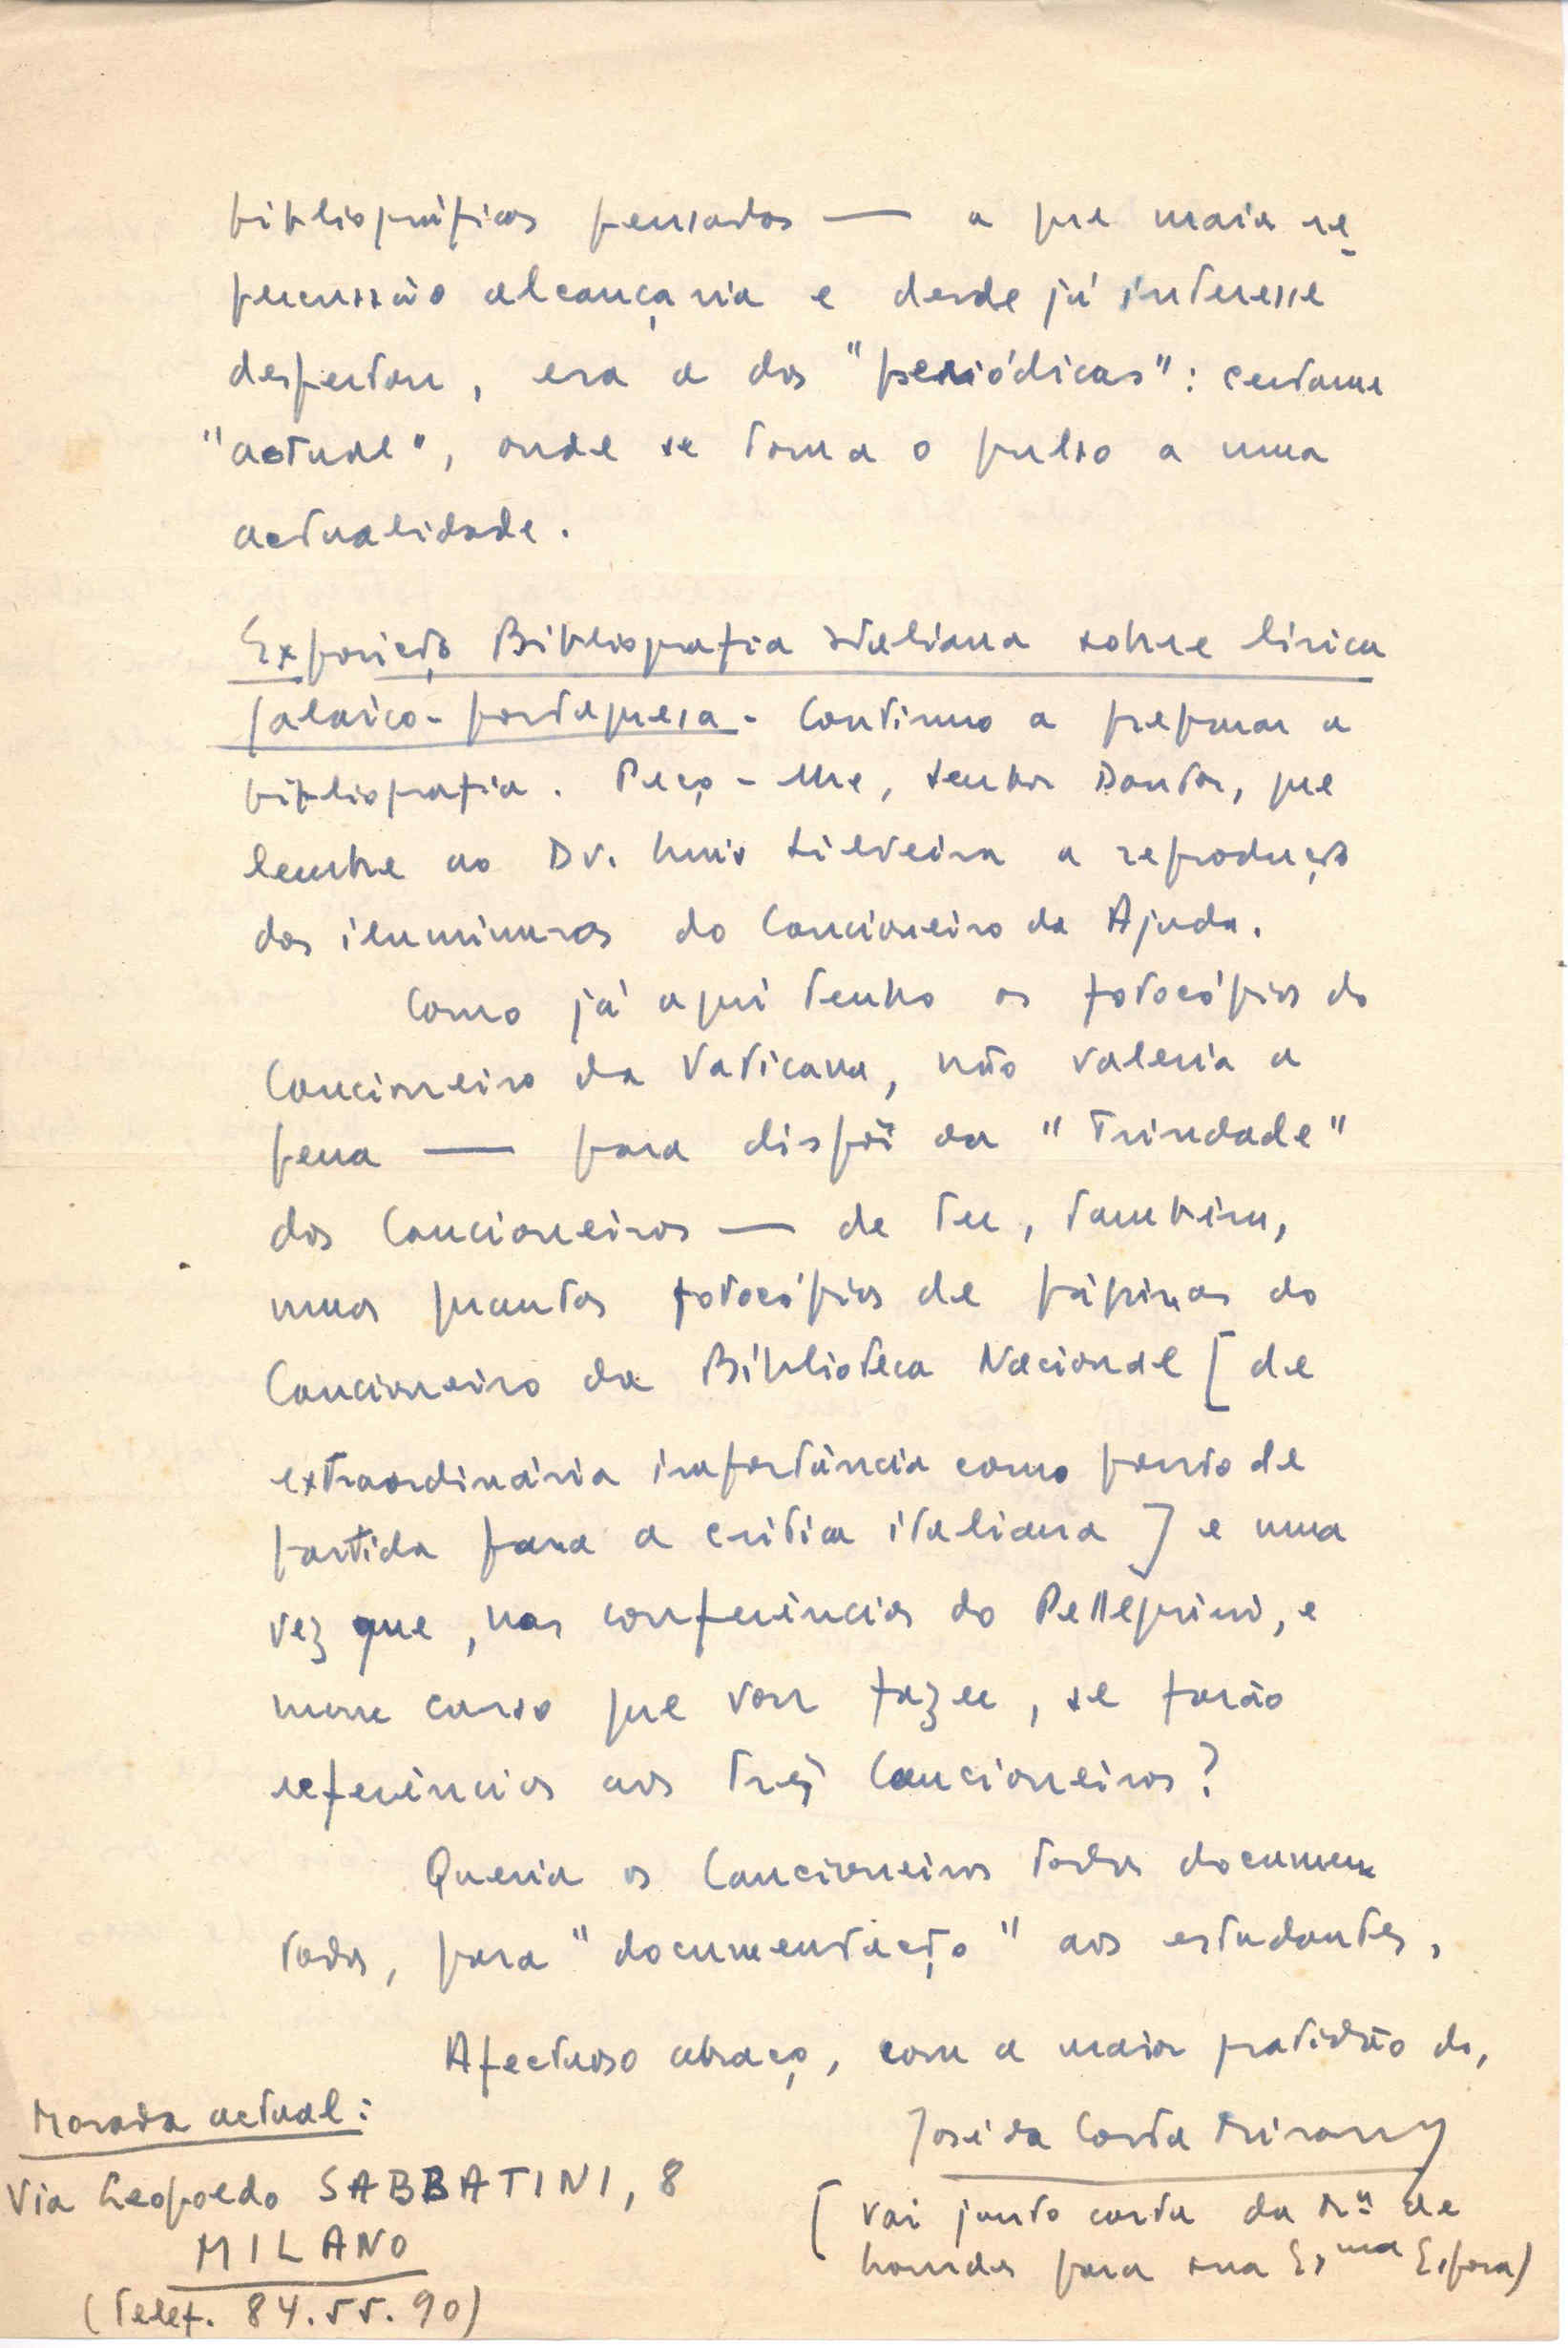 bibliográficas pensadas — a que maia re
percussão alcançaria e desde já interesse
despertou, era a dos "periódicas": certame
"actual", onde se toma o pulso a uma
actualidade.
Exposição Bibliografia italiana sobre lírica
galaico-portuguesa - Continuo a preparar a
bibliografia. Peço-lhe, senhor Doutor, que
lembre ao Dr. Luis Silveira a reprodução
das iluminuras do Cancioneiro da Ajuda.
Como já aqui tenho as fotocópias do
Cancioneiro da Vaticana, não valeria a
pena — para dispôr da "Trindade"
dos Cancioneiros — de ter, também,
umas quantas fotocópias de páginas do
Cancioneiro da Biblioteca Nacional [de
extraordinária importância como ponto de
partida para a crítica italiana] e uma
vez que, nas conferências do Pellegrini, e
num curso que vou fazer, se farão
referências aos três Cancioneiros?
Queria os Cancioneiros todos documen
tados, para "documentação" aos estudantes.
Afectuoso abraço, com a maior gratidão do,
José da Costa Miranda
[Vai junto carta da M.ª de
Lourdes para sua Exma Esposa)
Morada actual:
Via Leopoldo SABBATINI, 8
MILANO
(Telef. 84.55.90)